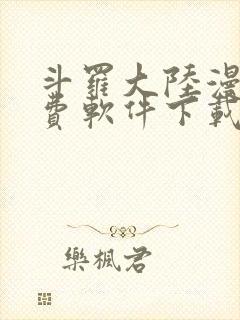 斗羅大陸漫
費軟件下載
樂楓君